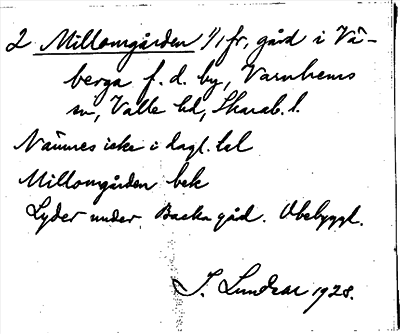 2 Millomgården 1/1 fr, gård i Vä-
berga f. d. by, Varnhems
sn, Valle hd, Skarab. l.
Nämnes icke i dagl. tal
Millomgården bek
Lyder under Backa gård. Obebyggt.
I. Lundear 1928.